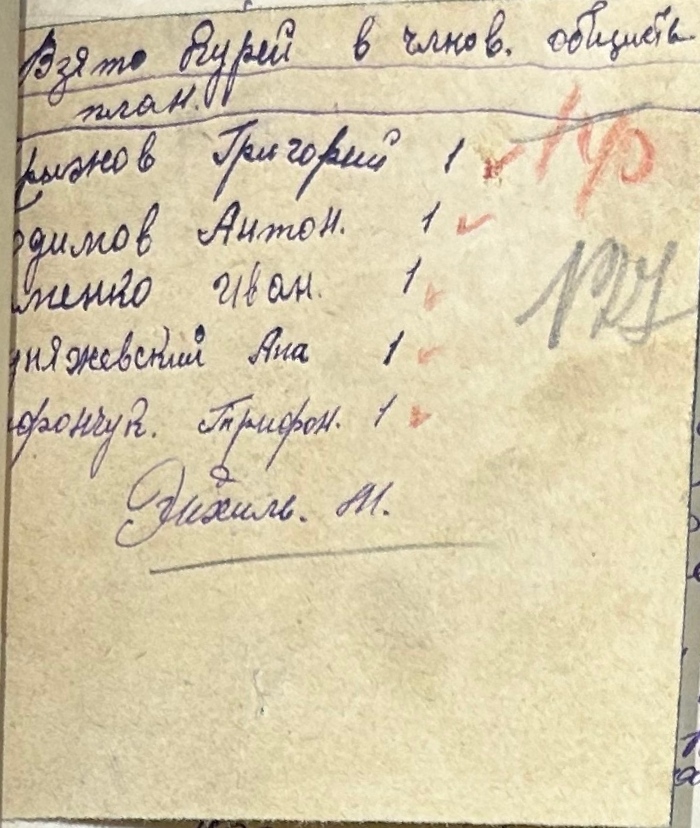 Взято Курей в члнов. обществ
план.
рыжнов Григорий 1
димов Антон. 1
менко Иван. 1
няжевский Ана 1
фрончук. Трифон. 1
127